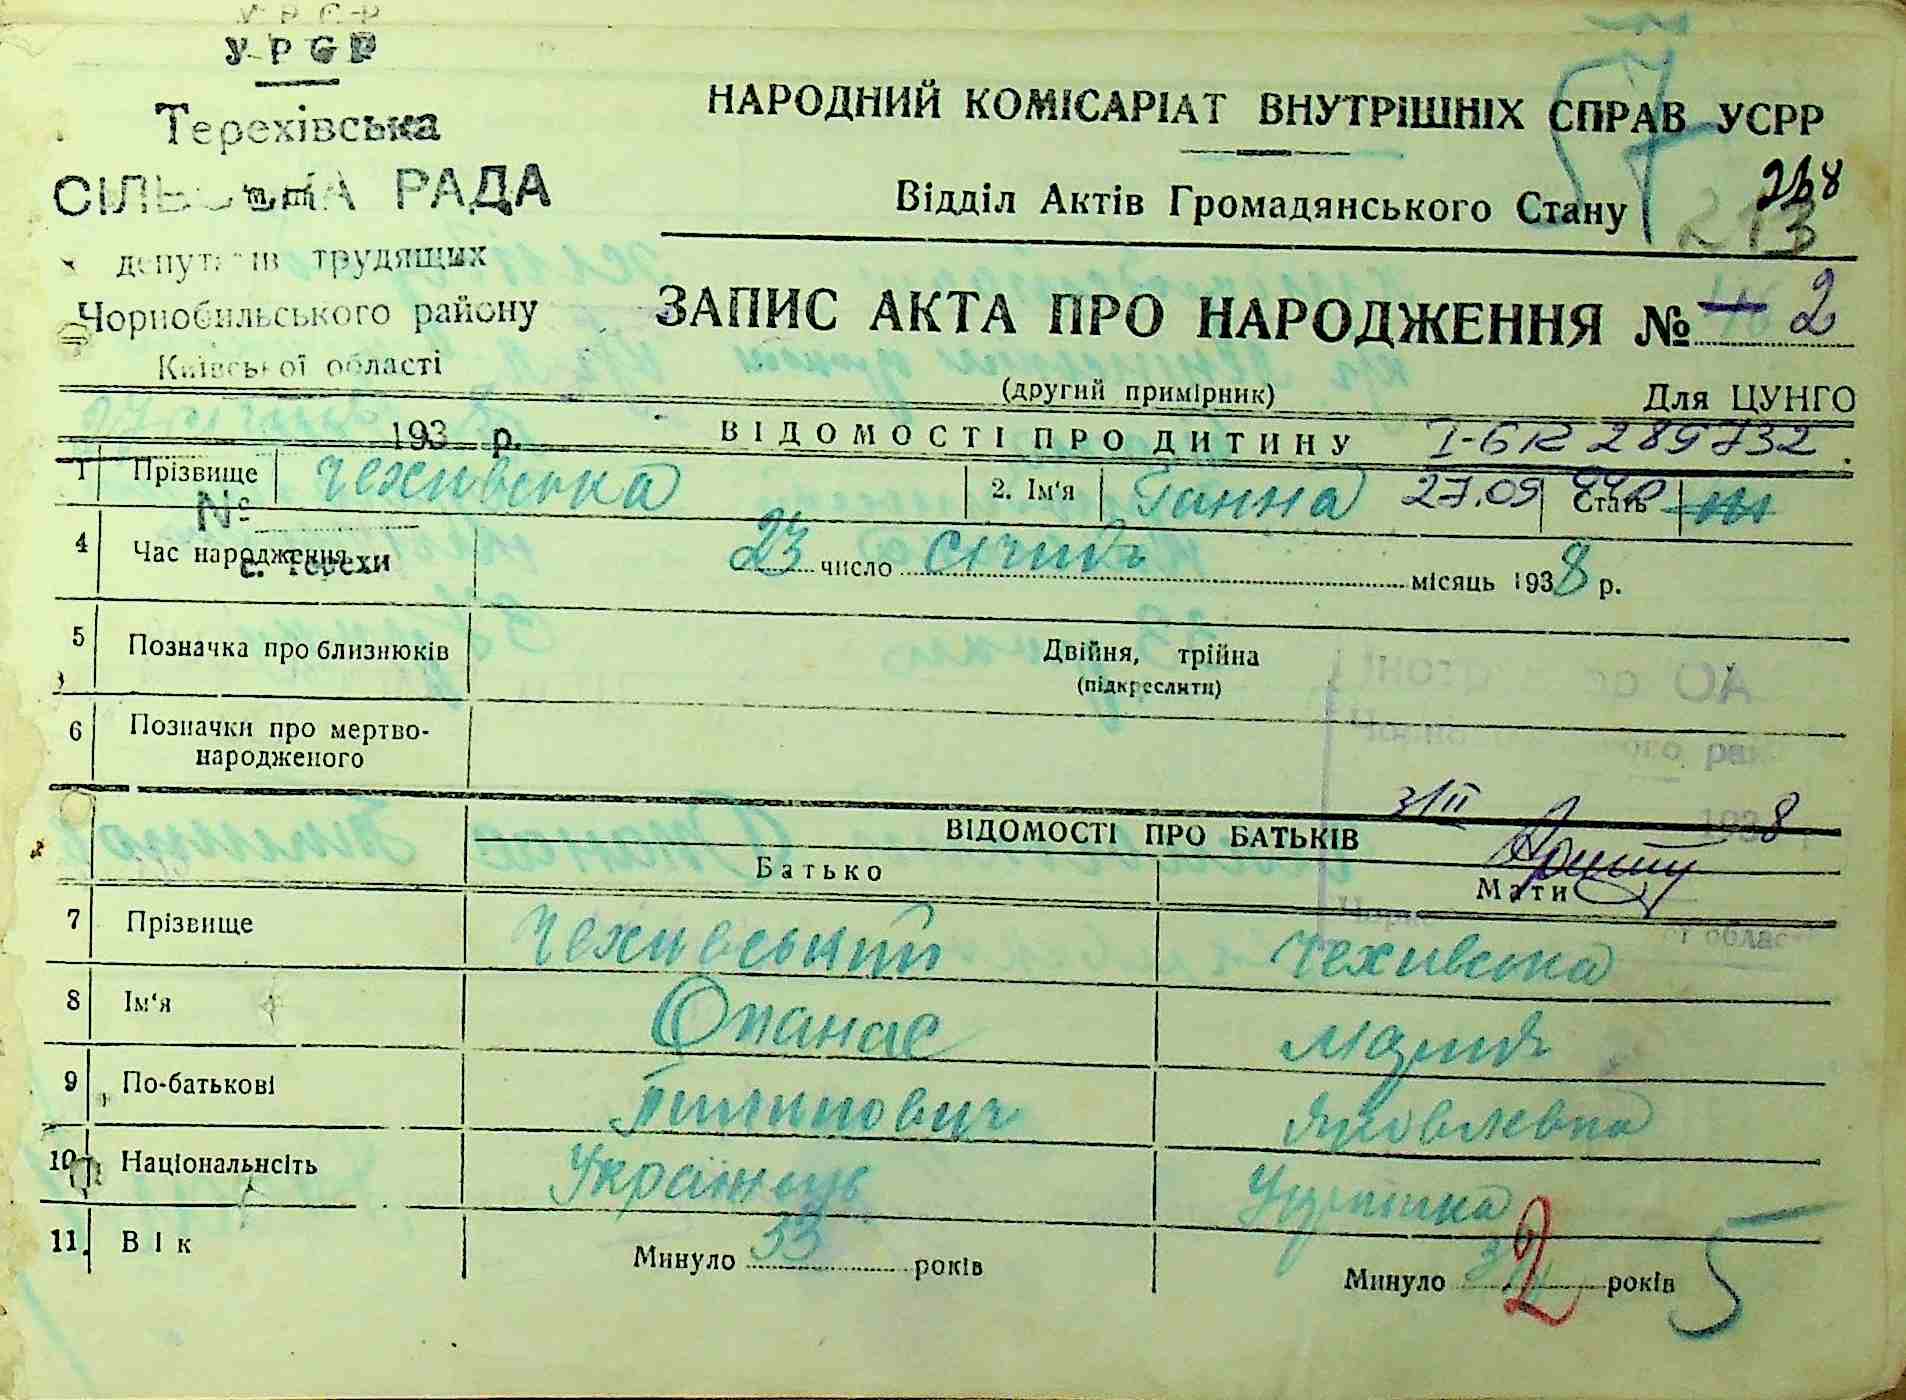 УРСР
Терехівська
СІЛЬСЬКА РАДА
депутатів трудящих
Чорнобильського району
Київської області
193 р.
№
с. Терехи
НАРОДНИЙ КОМІСАРІАТ ВНУТРІШНІХ СПРАВ УСРР
57
Відділ Актів Громадянського Стану
268
213
ЗАПИС АКТА ПРО НАРОДЖЕННЯ № 2
(другий примірник) Для ЦУНГО
ВІДОМОСТІ ПРО ДИТИНУ І-БК 289732
1 Прізвище Чехивська 2. Ім'я Ганна 27.09 Стать
4 Час народження 23 число січня місяць 1938 р.
5 Позначка про близнюків Двійня, трійна
(підкреслити)
6 Позначки про мертво-
народженого
3/II 8
ВІДОМОСТІ ПРО БАТЬКІВ
Батько Мати
7 Прізвище Чехивський Чехивська
8 Ім'я Опанас Мария
9 По-батькові Пилипович Яковлевна
10 Національнсіть Українець Українка
11. Вік Минуло 33 років Минуло років
2 5